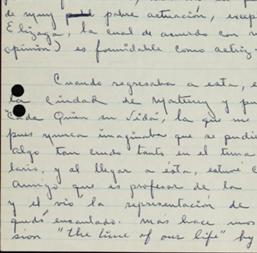 de muy pobre actuación, excep
Elizaga, la cual de acuerdo con m
opinión) es formidable como actriz
Cuando regresaba a esta, e
la ciudad de Monterrey y pu
Cada Quien su Vida, la que me
pues nunca imaginaba que se pudi
algo tan crudo tanto en el tema
lario, y al llegar a ésta, estuve c
amigo que es profesor de la
y el vio la representación de
quedó encantado. Mas hace unos
sion "the time of our life" by